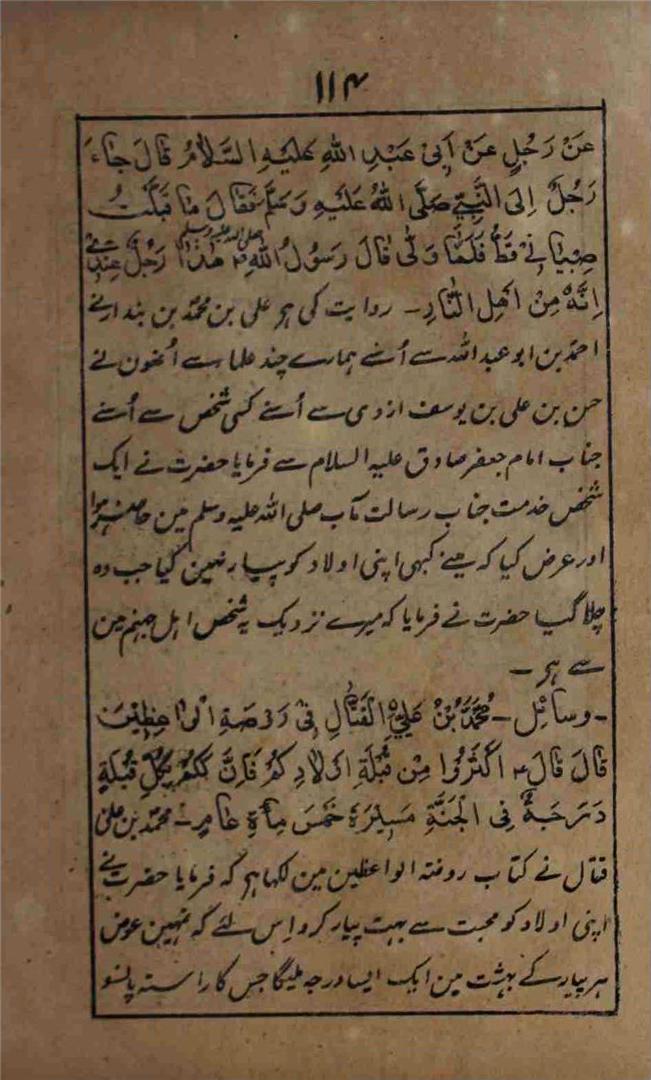 ۱۱۴
عَنْ رَجُلٍ عَنْ اَبِیْ عَبْدِ اللهِ عَلَیْهِ السَّلَامُ قَالَ جَاءَ
رَجُلٌ اِلَی النَّبِیِّ صَلَّی اللهُ عَلَیْهِ وَسَلَّمَ فَقَالَ مَا قَبَّلْتُ
صِبْیَانِیْ قَطُّ فَلَمَّا وَلّٰی قَالَ رَسُوْلُ اللهِ صلی اللہ علیہ وسلم هٰذَا رَجُلٌ عِنْدِیْ
اِنَّهٗ مِنْ اَهْلِ النَّارِ۔ روایت کی ہر علی بن محمد بن بندارنے
احمد بن ابو عبد اللہ سے اُسنے ہمارے چند علما سے اُنھون نے
حسن بن علی بن یوسف ازدی سے اُسنے کسی شخص سے اُسنے
جناب امام جعفر صادق علیہ السلام سے فرمایا حضرت نے ایک
شخص خدمت جناب رسالت مآب صلی اللہ علیہ وسلم مین حاضر ہوا
اور عرض کیا کہ مینے کبھی اپنی اولاد کو پیار نہین کیا جب وہ
چلا گیا حضرت نے فرمایا کہ میرے نزدیک یہ شخص اہل جہنم مین
سے ہر۔
۔وسائل۔ مُحَمَّدُ بْنُ عَلِیِّ الْفَتَّالِ فِیْ رَوْضَةِ الْوَاعِظِیْنَ
قَالَ قَالَ ؑ اَکْثِرُوْا مِنْ قُبْلَةِ اَوْلَادِکُمْ فَاِنَّ لَکُمْ بِکُلِّ قُبْلَةٍ
دَرَجَةً فِی الْجَنَّةِ مَسِیْرَةَ خَمْسِ مِأَةِ عَامٍ۔ محمد بن علی
فتال نے کتاب روضۃ الواعظین مین لکھا ہر کہ فرمایا حضرت نے
اپنی اولاد کو محبت سے بہت پیار کرو اِس لئے کہ تمہین عوض
ہر پیار کے بہشت مین ایک ایسا درجہ ملیگا جس کا راستہ پانسو